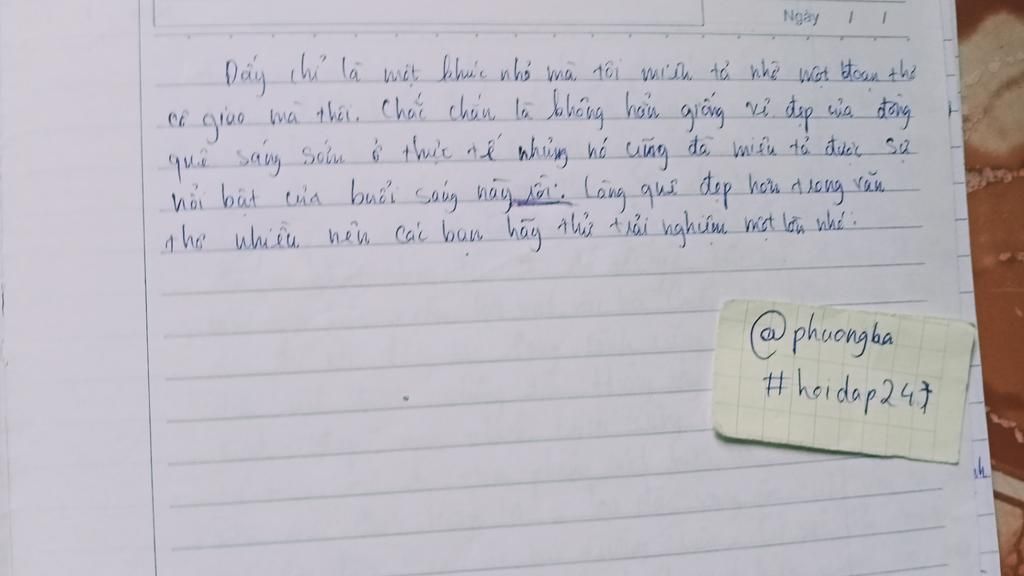 Ngày / /
Đấy chỉ là một khúc nhỏ mà tôi miêu tả nhờ một đoạn thơ
cô giao mà thôi. Chắc chắn là không hẳn giống vẻ đẹp của đồng
quê sáng sớm ở thực tế nhưng nó cũng đã miêu tả được sự
nổi bật của buổi sáng này rồi. Làng quê đẹp hơn trong văn
thơ nhiều nên các bạn hãy thử trải nghiệm một lần nhé.
@phuongba
#hoidap247